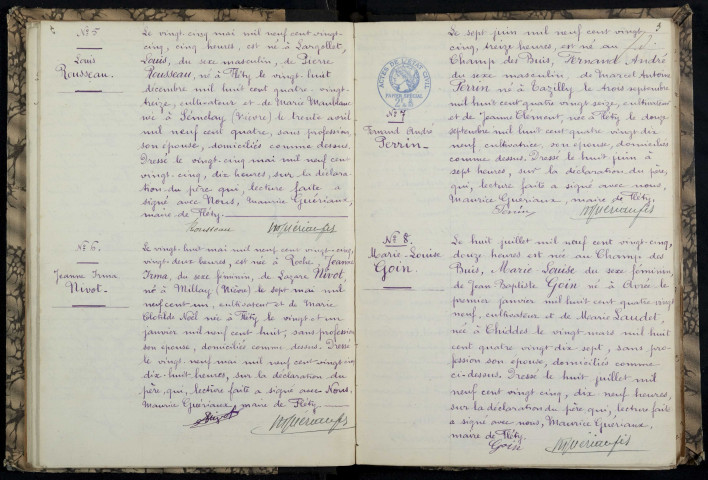 N° 5
Louis
Rousseau.
Le vingt-cinq mai mil neuf cent vingt-
cinq, cinq heures, est né à Largollet,
Louis, du sexe masculin, de Pierre
Rousseau, né à Fléty le vingt-huit
décembre mil huit cent quatre-vingt-
treize, cultivateur et de Marie
née à Sémelay (Nièvre) le trente avril
mil neuf cent quatre, sans profession
son épouse, domiciliés comme dessus.
Dressé le vingt-cinq mai mil neuf cent
vingt-cinq, dix heures, sur la déclara-
tion du père qui, lecture faite a
signé avec Nous, Maurice Guériaux,
maire de Fléty.
Rousseau
N° 6.
Jeanne Irma
Nivot.
Le vingt-huit mai mil neuf cent vingt-cinq,
vingt-deux heures, est née à Roche, Jeanne
Irma, du sexe féminin, de Lazare Nivot,
né à Millay (Nièvre) le sept mai mil
neuf cent un, cultivateur et de Marie
Clotilde Noël née à Fléty le vingt et un
janvier mil neuf cent huit, sans profession
son épouse, domiciliés comme dessus. Dressé
le vingt-neuf mai mil neuf cent vingt-cinq
dix-huit heures, sur la déclaration du
père, qui, lecture faite a signé avec Nous
Maurice Guériaux, maire de Fléty.
Nivot
3
ACTES DE L'ÉTAT CIVIL
PAPIER SPÉCIAL
N° 7
Fernand André
Perrin
Le sept juin mil neuf cent vingt-
cinq, treize heures, est né au
Champ des Buis, Fernand André
du sexe masculin, de Marcel Antoine
Perrin né à Tazilly le trois septembre
mil huit cent quatre vingt seize, cultivateur
et de Jeanne Clément, née à Fléty le douze
septembre mil huit cent quatre vingt dix
neuf, cultivatrice, son épouse, domiciliés
comme dessus. Dressé le huit juin à
sept heures, sur la déclaration du père,
qui, lecture faite a signé avec nous,
Maurice Gueriaux, maire de Fléty.
Perrin
N° 8.
Marie-Louise
Goin.
Le huit juillet mil neuf cent vingt-cinq,
douze heures est née au Champ des
Buis, Marie Louise du sexe féminin,
de Jean Baptiste Goin né à Avrée le
premier janvier mil huit cent quatre vingt
neuf, cultivateur et de Marie Laudet,
née à Chiddes le vingt mars mil huit
cent quatre vingt dix sept, sans pro-
fession son épouse, domiciliés comme
ci-dessus. Dressé le huit juillet mil
neuf cent vingt cinq, dix neuf heures,
sur la déclaration du père qui, lecture fait
a signé avec nous, Maurice Gueriaux,
maire de Fléty.
Goin